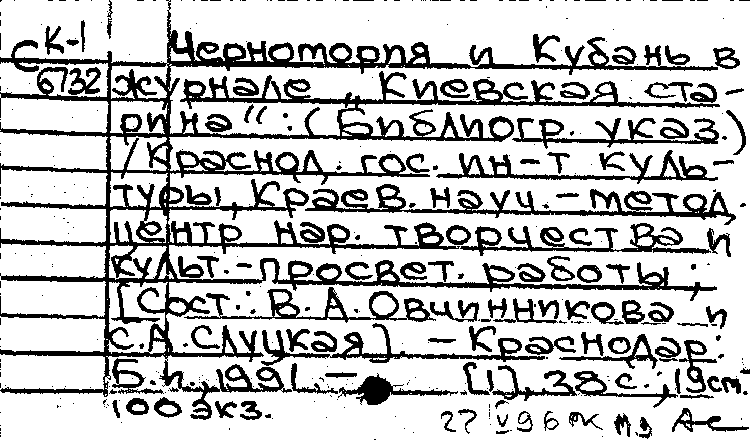 К-1
С 6732
Черномория и Кубань в
журнале „Киевская ста-
рина“: (Библиогр. указ.)
/Краснод. гос. ин-т куль-
туры, Краев. науч.-метод.
центр нар. творчества и
культ.-просвет. работы;
[Сост.: В.А.Овчинникова и
С.А.Слуцкая]. - Краснодар:
Б.и., 1991. - [1], 38 с.; 19 см. -
100 экз.
27 V 96